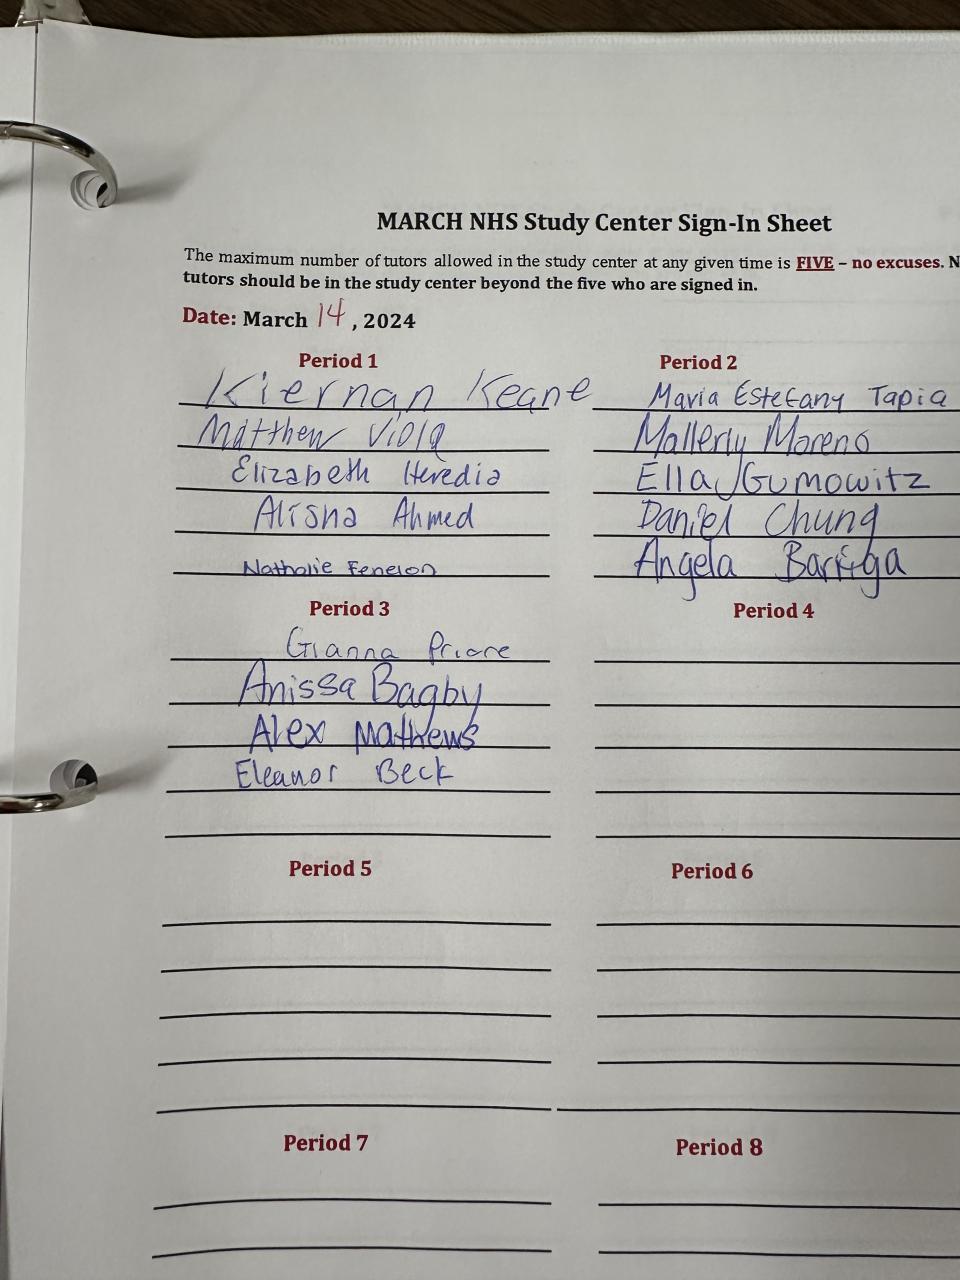 MARCH NHS Study Center Sign-In Sheet
The maximum number of tutors allowed in the study center at any given time is FIVE – no excuses. N
tutors should be in the study center beyond the five who are signed in.
Date: March 14, 2024
Period 1
Kiernan Keane
Matthew Viola
Elizabeth Heredia
Alisha Ahmed
Nathalie Fenelon
Period 2
Maria Estefany Tapia
Mallerly Moreno
Ella Gumowitz
Daniel Chung
Angela Barriga
Period 3
Gianna Priore
Anissa Bagby
Alex Mathews
Eleanor Beck
Period 4
Period 5
Period 6
Period 7
Period 8